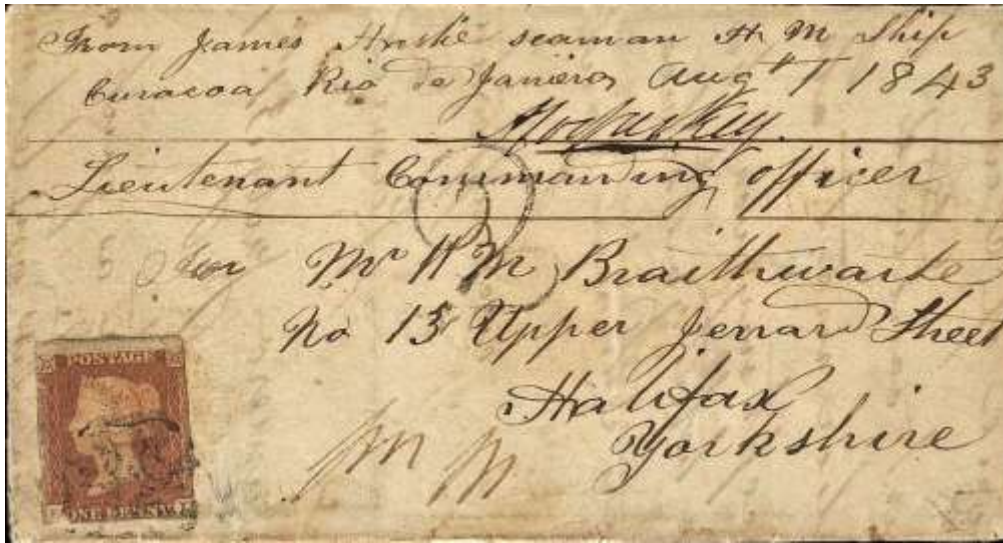 From James seaman H M Ship
Curacoa Rio de Janiero Augst 1 1843
Lieutenant Commanding officer
for Mr Wm Braithwaite
No 15 Upper Jerrard Street
Halifax
Yorkshire
POSTAGE
ONE PENNY